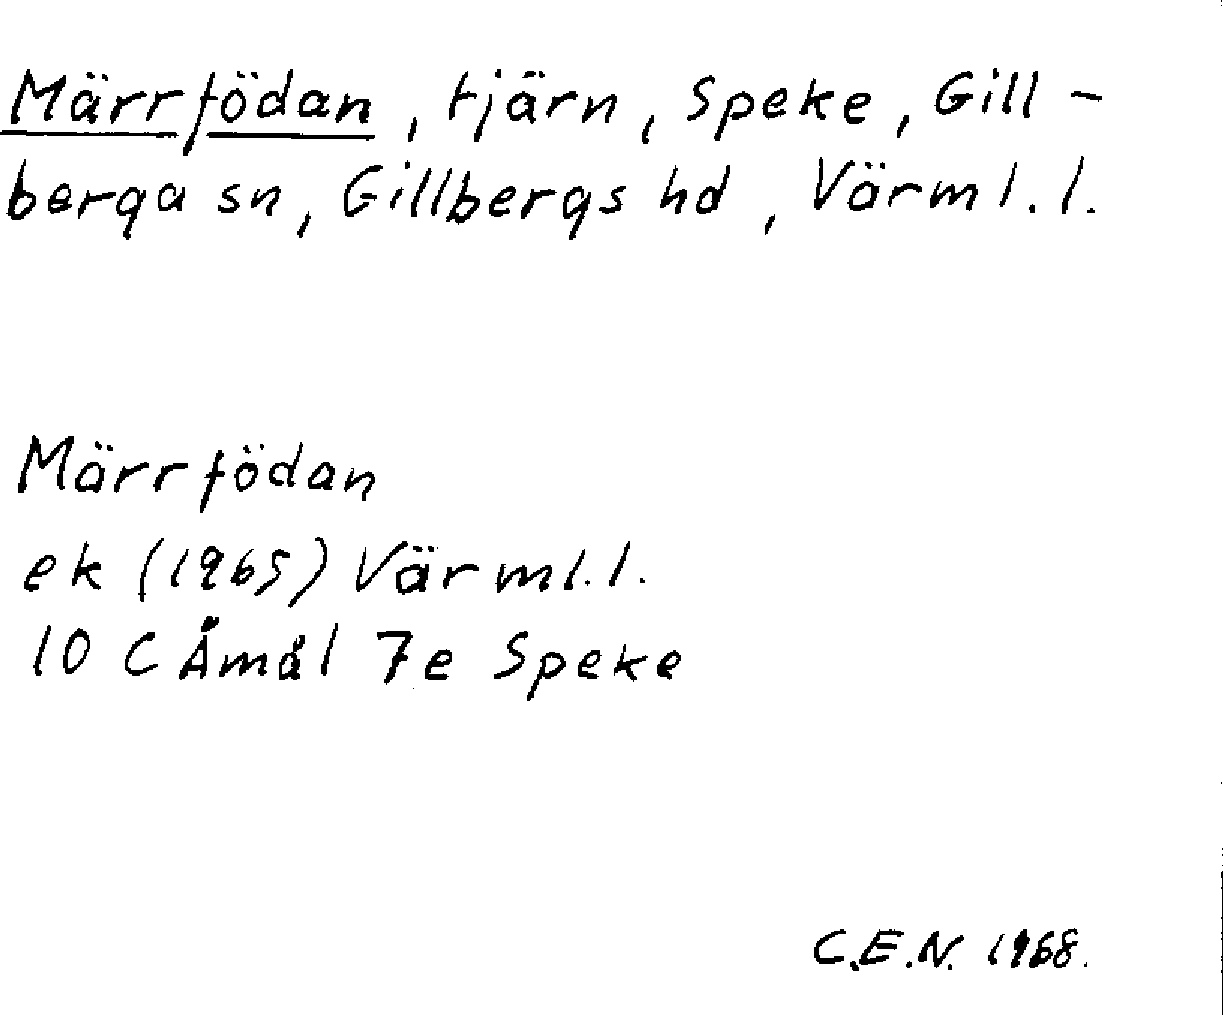 Märrfödan, tjärn, Speke, Gill-
berga sn, Gillbergs hd, Värml. l.
Märrfödan
ek (1965) Värml. l.
10 C Åmål 7e Speke
C.E.N. 1968.